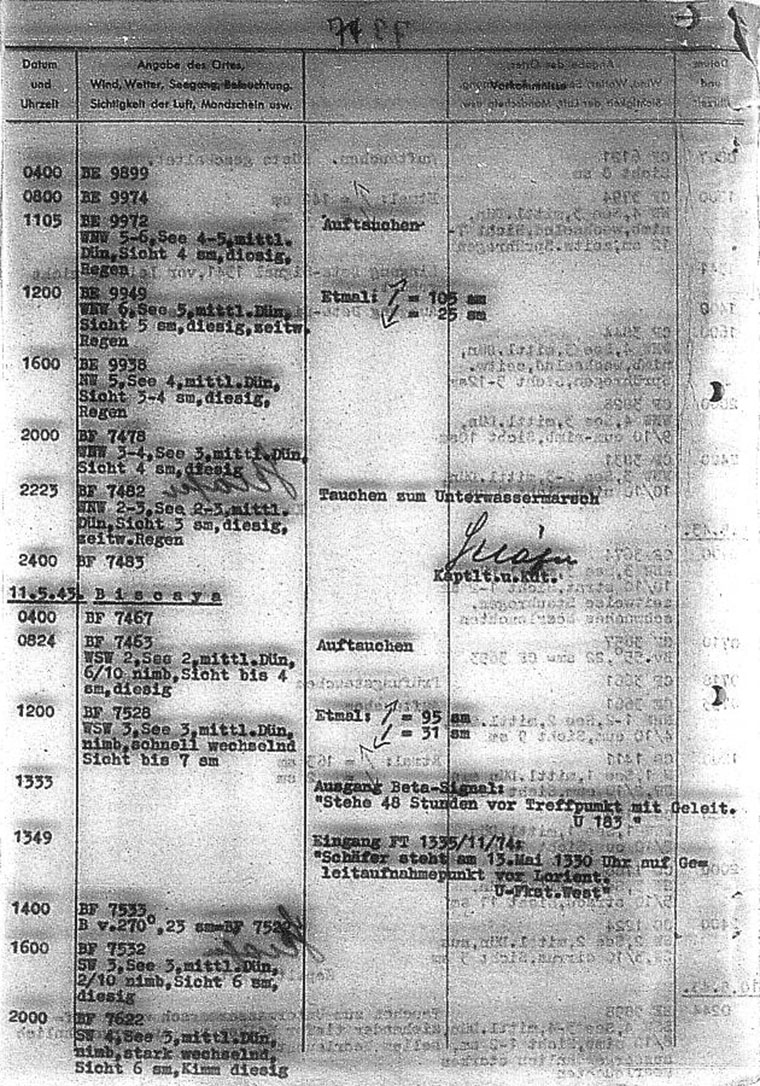 Datum
und
Uhrzeit
Angabe des Ortes,
Wind, Wetter, Seegang, Beleuchtung,
Sichtigkeit der Luft, Mondschein usw.
Vorkommnisse
0400 BE 9899
0800 BE 9974
1105 BE 9972 Auftauchen
WNW 5-6,See 4-5,mittl.
Dün,Sicht 4 sm,diesig,
Regen
1200 BE 9949 Etmal: = 105 sm
WNW 6,See 5,mittl.Dün, = 25 sm
Sicht 5 sm,diesig,zeitw.
Regen
1600 BE 9938
NW 5,See 4,mittl.Dün,
Sicht 3-4 sm,diesig,
Regen
2000 BF 7478
WNW 3-4,See 3,mittl.Dün,
Sicht 4 sm,diesig
2223 BF 7482 Tauchen zum Unterwassermarsch
WNW 2-3,See 2-3,mittl.
Dün,Sicht 3 sm,diesig,
zeitw.Regen
2400 BF 7483
Schäfer
Kaptlt.u.Kdt.
11.5.43. Biscaya
0400 BF 7467
0824 BF 7463 Auftauchen
WSW 2,See 2,mittl.Dün,
6/10 nimb,Sicht bis 4
sm,diesig
1200 BF 7528 Etmal: = 95 sm
WSW 3,See 3,mittl.Dün, = 31 sm
nimb,schnell wechselnd
Sicht bis 7 sm
1333 Ausgang Beta-Signal:
"Stehe 48 Stunden vor Treffpunkt mit Geleit.
U 183 "
1349 Eingang FT 1335/11/74:
"Schäfer steht am 13.Mai 1330 Uhr auf Ge=
leitaufnahmepunkt vor Lorient.
U-Fkst.West"
1400 BF 7533
B v.270°,23 sm=BF 7522
1600 BF 7532
SW 3,See 3,mittl.Dün,
2/10 nimb,Sicht 6 sm,
diesig
2000 BF 7622
SW 4,See 3,mittl.Dün,
nimb,stark wechselnd,
Sicht 6 sm,Kimm diesig